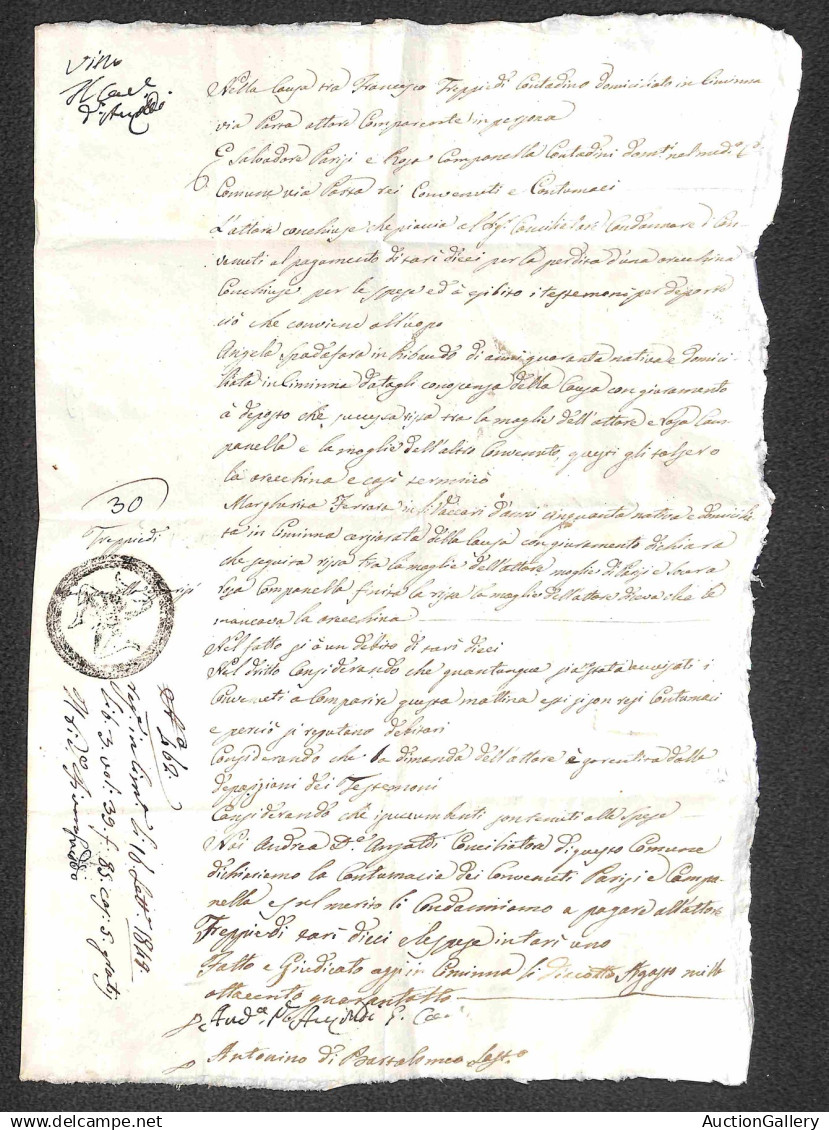 Visto
Nella Causa tra Francesco Treppiedi Contadino domiciliato in Ciminna
via Parra attore Comparente in persona
E Salvadore Parisi e Rosa Campanella Contadini dom.ti nel med.o
Comune via Parra rei Convenuti e Contumaci
L'attore conchiuse che piaccia al Sig.r Conciliatore Condannare i Con-
venuti al pagamento di tarì dieci per la perdita d'una orecchina
Conchiuse per le spese ed à esibito i testemoni per deporre
ciò che conviene all'uopo
Angela Spadafora in Ribaudo di anni quaranta nativa e domici-
liata in Ciminna datagli conoscenza della Causa con giuramento
à deposto che successa rissa tra la moglie dell'attore e Rosa Cam-
panella e la moglie dell'altro Convenuto, questi gli tolsero
la orecchina e così terminò
Margherita Ferrara in d'anni cinquanta nativa e domicilia-
ta in Ciminna della Causa con giuramento dichiara
che seguita rissa tra la moglie dell'attore moglie di Parisi e
Rosa Campanella finita la rissa la moglie dell'attore diceva che le
mancava la orecchina
Nel fatto si à un debito di tarì dieci
Nel dritto Considerando che quantunque avvisati i
Convenuti a Comparire questa mattina essi si son resi Contumaci
e perciò si reputano debitori
Considerando che la dimanda dell'attore è garentita dalle
deposizioni dei Testemoni
Considerando che i succumbenti son tenuti alle spese
Noi Andrea D.r Anzaldi Conciliatore di questo Comune
dichiariamo la Contumacia dei Convenuti Parisi e Campa-
nella e sul merito li Condanniamo a pagare all'attore
Treppiedi tarì dieci e le spese in tarì uno
Fatto e Giudicato oggi in Ciminna li diciotto Agosto mille
ottocento quarantotto
Antonino di Bartolomeo
30
Treppiedi
N.o 462
lib. 3 vol. 39 f. 85 cas. 5 gratis
AuctionGallery
www.delcampe.net